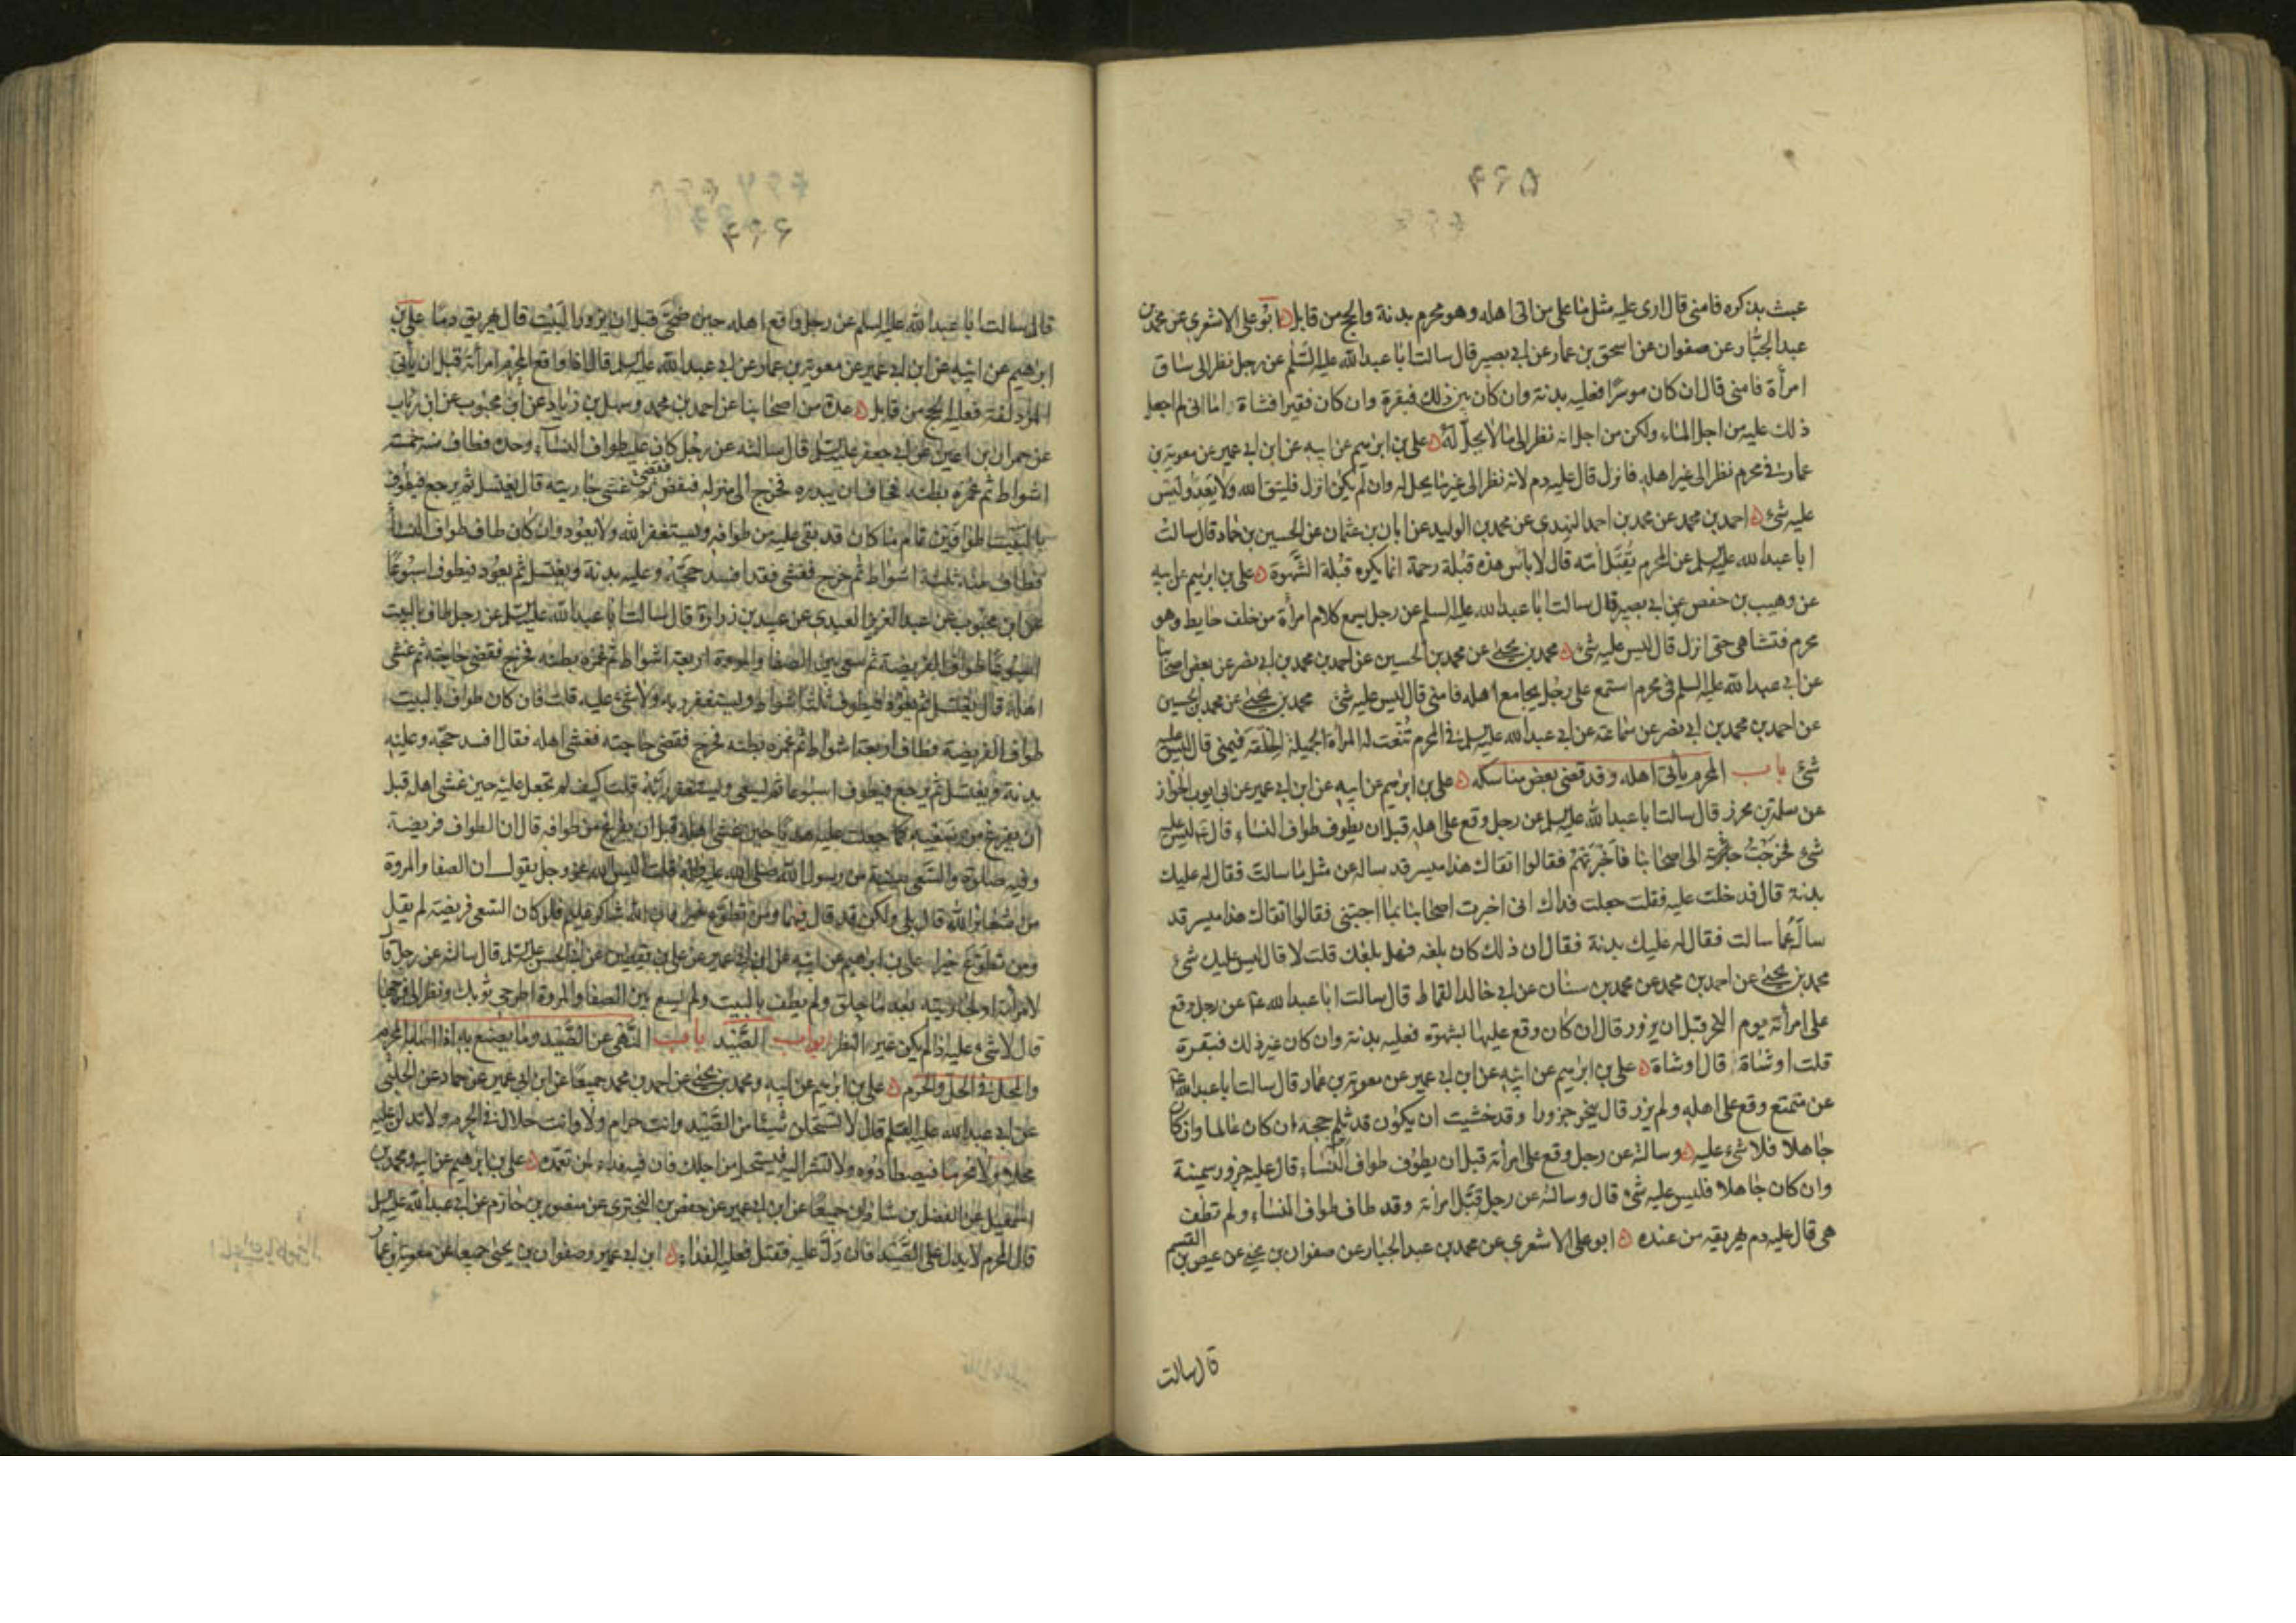 ۴۶۵
عبث بذكره فامنى قال ارى عليه مثل ما على من اتى اهله وهو محرم بدنة والحج من قابل ابو على الاشعرى عن محمد بن
عبد الجبار عن صفوان عن اسحق بن عمار عن ابى بصير قال سالت ابا عبد الله عليه السلم عن رجل نظر الى ساق
امرأة فامنى قال ان كان موسرا فعليه بدنة وان كان بين ذلك فبقرة وان كان فقيرا فشاة اما انى لم اجعل
ذلك عليه من اجل الماء ولكن من اجل انه نظر الى ما لا يحل له على بن ابرهيم عن ابيه عن ابن ابى عمير عن معوية بن
عمار فى محرم نظر الى غير اهله فانزل قال عليه دم لانه نظر الى غير ما يحل له وان لم يكن انزل فليتق الله ولا يعد وليس
عليه شئ احمد بن محمد عن محمد بن احمد النهدى عن محمد بن الوليد عن ابان بن عثمان عن الحسين بن حماد قال سالت
ابا عبد الله عليه السلم عن المحرم يقبل امه قال لا باس هذه قبلة رحمة انما يكره قبلة الشهوة على بن ابرهيم عن ابيه
عن وهيب بن حفص عن ابى بصير قال سالت ابا عبد الله عليه السلم عن رجل يسمع كلام امرأة من خلف حايط وهو
محرم فتشاهى حتى انزل قال ليس عليه شئ محمد بن يحيى عن محمد بن الحسين عن احمد بن محمد بن ابى نصر عن بعض اصحابنا
عن ابى عبد الله عليه السلم فى محرم استمع على رجل يجامع اهله فامنى قال ليس عليه شئ محمد بن يحيى عن محمد بن الحسين
عن احمد بن محمد بن ابى نصر عن سماعة عن ابى عبد الله عليه السلم فى المحرم تنعت له المرأة الجميلة الخلقة فيمنى قال ليس عليه
شئ باب المحرم يأتى اهله وقد قضى بعض مناسكه على بن ابرهيم عن ابيه عن ابن ابى عمير عن ابى ايوب الخزاز
عن سلمة بن محرز قال سالت ابا عبد الله عليه السلم عن رجل وقع على اهله قبل ان يطوف طواف النساء قال ليس عليه
شئ فخرجت الى اصحابنا فاخبرتهم فقالوا اتقاك هذا ميسر قد ساله عن مثل ما سالت فقال له عليك
بدنة قال فدخلت عليه فقلت جعلت فداك انى اخبرت اصحابنا بما اجبتنى فقالوا اتقاك هذا ميسر قد
ساله عما سالت فقال له عليك بدنة فقال ان ذلك كان بلغه فهل بلغك قلت لا قال ليس عليك شئ
محمد بن يحيى عن احمد بن محمد عن محمد بن سنان عن ابى خالد القماط قال سالت ابا عبد الله ع عن رجل وقع
على امرأته يوم النحر قبل ان يزور قال ان كان وقع عليها بشهوة فعليه بدنة وان كان غير ذلك فبقرة
قلت او شاة قال او شاة على بن ابرهيم عن ابيه عن ابن ابى عمير عن معوية بن عمار قال سالت ابا عبد الله ع
عن متمتع وقع على اهله ولم يزر قال ينحر جزورا وقد خشيت ان يكون قد ثلم حجه ان كان عالما وان كان
جاهلا فلا شئ عليه وسالته عن رجل وقع على امرأته قبل ان يطوف طواف النساء قال عليه جزور سمينة
وان كان جاهلا فليس عليه شئ قال وسالته عن رجل قبل امرأته وقد طاف طواف النساء ولم تطف
هى قال عليه دم يهريقه من عنده ابو على الاشعرى عن محمد بن عبد الجبار عن صفوان بن يحيى عن عيص بن القسيم
قال سالت
۴۶۶
قال سالت ابا عبد الله عليه السلم عن رجل واقع اهله حين ضحى قبل ان يزور البيت قال يهريق دما على بن
ابرهيم عن ابيه عن ابن ابى عمير عن معوية بن عمار عن ابى عبد الله عليه السلم قال اذا واقع المحرم امرأته قبل ان يأتى
المزدلفة فعليه الحج من قابل عدة من اصحابنا عن احمد بن محمد وسهل بن زياد عن ابن محبوب عن ابن رئاب
عن حمران بن اعين عن ابى جعفر عليه السلم قال سالته عن رجل كان عليه طواف النساء وحده فطاف منه خمسة
اشواط ثم غمزه بطنه فخاف ان يبدره فخرج الى منزله فنقض ثم غشى جاريته قال يغتسل ثم يرجع فيطوف
بالبيت طوافين تمام ما كان قد بقى عليه من طوافه ويستغفر الله ولا يعود وان كان طاف طواف النساء
فطاف منه ثلثة اشواط ثم خرج فغشى فقد افسد حجه وعليه بدنة ويغتسل ثم يعود فيطوف اسبوعا
عن ابن محبوب عن عبد العزيز العبدى عن عبيد بن زرارة قال سالت ابا عبد الله عليه السلم عن رجل طاف بالبيت
اسبوعا طواف الفريضة ثم سعى بين الصفا والمروة اربعة اشواط ثم غمزه بطنه فخرج فقضى حاجته ثم غشى
اهله قال يغتسل ثم يعود فيطوف ثلثة اشواط ويستغفر ربه ولا شئ عليه قلت فان كان طواف بالبيت
طواف الفريضة فطاف اربعة اشواط ثم غمزه بطنه فخرج فقضى حاجته فغشى اهله فقال افسد حجه وعليه
بدنة ويغتسل ثم يرجع فيطوف اسبوعا ثم يسعى ويستغفر ربه قلت كيف لم تجعل عليه حين غشى اهله قبل
ان يفرغ من سعيه كما جعلت عليه هديا حين غشى اهله قبل ان يفرغ من طوافه قال ان الطواف فريضة
وفيه صلوة والسعى سنة من رسول الله صلى الله عليه وآله قلت اليس الله عز وجل يقول ان الصفا والمروة
من شعائر الله قال بلى ولكن قد قال فيهما ومن تطوع خيرا فان الله شاكر عليم فلو كان السعى فريضة لم يقل
ومن تطوع خيرا على بن ابرهيم عن ابيه عن ابن ابى عمير عن على بن يقطين عن ابى الحسن عليه السلم قال سالته عن رجل قال
لامرأته او لجاريته بعد ما حلق ولم يطف بالبيت ولم يسع بين الصفا والمروة اطرحى ثوبك ونظر الى فرجها
قال لا شئ عليه اذا لم يكن غير النظر ابواب الصيد باب النهى عن الصيد وما يصنع به اذا اصابه المحرم
والمحل فى الحل والحرم على بن ابرهيم عن ابيه ومحمد بن يحيى عن احمد بن محمد جميعا عن ابن ابى عمير عن حماد عن الحلبى
عن ابى عبد الله عليه السلم قال لا تستحلن شيئا من الصيد وانت حرام ولا وانت حلال فى الحرم ولا تدلن عليه
محلا ولا محرما فيصطادوه ولا تشر اليه فيستحل من اجلك فان فيه فداء لمن تعمده على بن ابرهيم عن ابيه ومحمد بن
اسمعيل عن الفضل بن شاذان جميعا عن ابن ابى عمير عن حفص بن البخترى عن منصور بن حازم عن ابى عبد الله عليه السلم
قال المحرم لا يدل على الصيد فان دل عليه فقتل فعليه الفداء ابن ابى عمير وصفوان بن يحيى جميعا عن معوية بن عمار